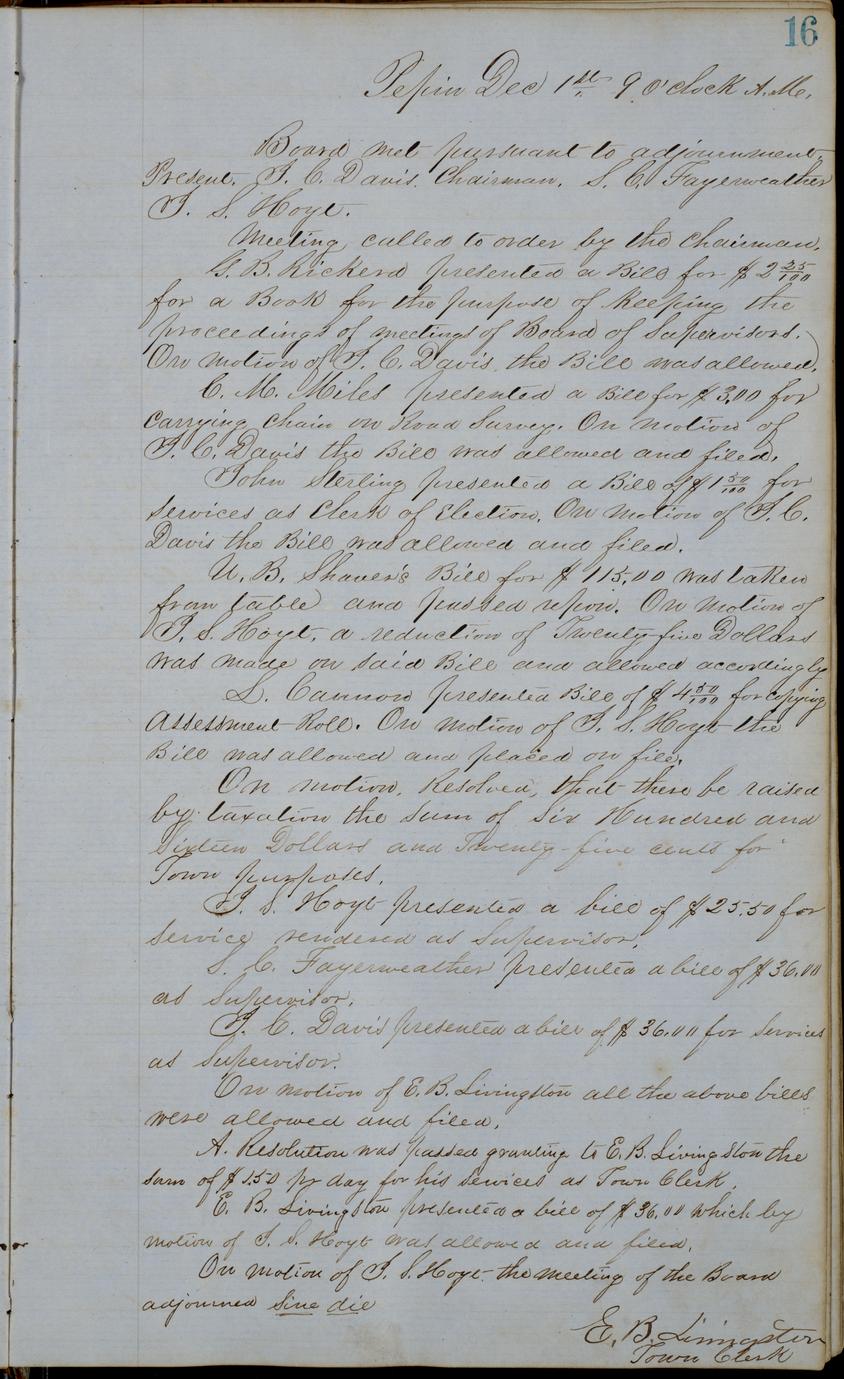 16
Pepin Dec 1st 9 o'clock A.M.
Board met pursuant to adjournment.
Present. J. C. Davis. Chairman. S. C. Fayerweather
J. S. Hoyt.
Meeting called to order by the Chairman.
G. B. Rickerd presented a Bill for $2 25/100
for a Book for the purpose of Keeping the
proceedings of meetings of Board of Supervisors.
On motion of J. C. Davis the Bill was allowed.
C. M. Miles presented a Bill for $3,00 for
carrying chain on Road Survey. On motion of
J. C. Davis the Bill was allowed and filed.
John Sterling presented a Bill of $1 50/100 for
services as Clerk of Election. On motion of J. C.
Davis the Bill was allowed and filed.
U. B. Shaver's Bill for $115,00 was taken
from table and passed upon. On motion of
J. S. Hoyt. a reduction of Twenty-five Dollars
was made on said Bill and allowed accordingly
L. Cannon presented Bill of $4 50/100 for copying
Assessment Roll. On motion of J. S. Hoyt the
Bill was allowed and placed on file.
On motion, Resolved, that there be raised
by taxation the sum of Six Hundred and
Sixteen Dollars and Twenty-five cents for
Town purposes.
J. S. Hoyt presented a bill of $25.50 for
service rendered as Supervisor.
S. C. Fayerweather presented a bill of $36.00
as Supervisor.
J. C. Davis presented a bill of $36.00 for services
as Supervisor.
On motion of E. B. Livingston all the above bills
were allowed and filed.
A. Resolution was passed granting to E. B. Livingston the
sum of $1.50 pr day for his services as Town Clerk.
E. B. Livingston presented a bill of $36.00 which by
motion of J. S. Hoyt was allowed and filed.
On motion of J. S. Hoyt the meeting of the Board
adjourned Sine die
E. B. Livingston
Town Clerk